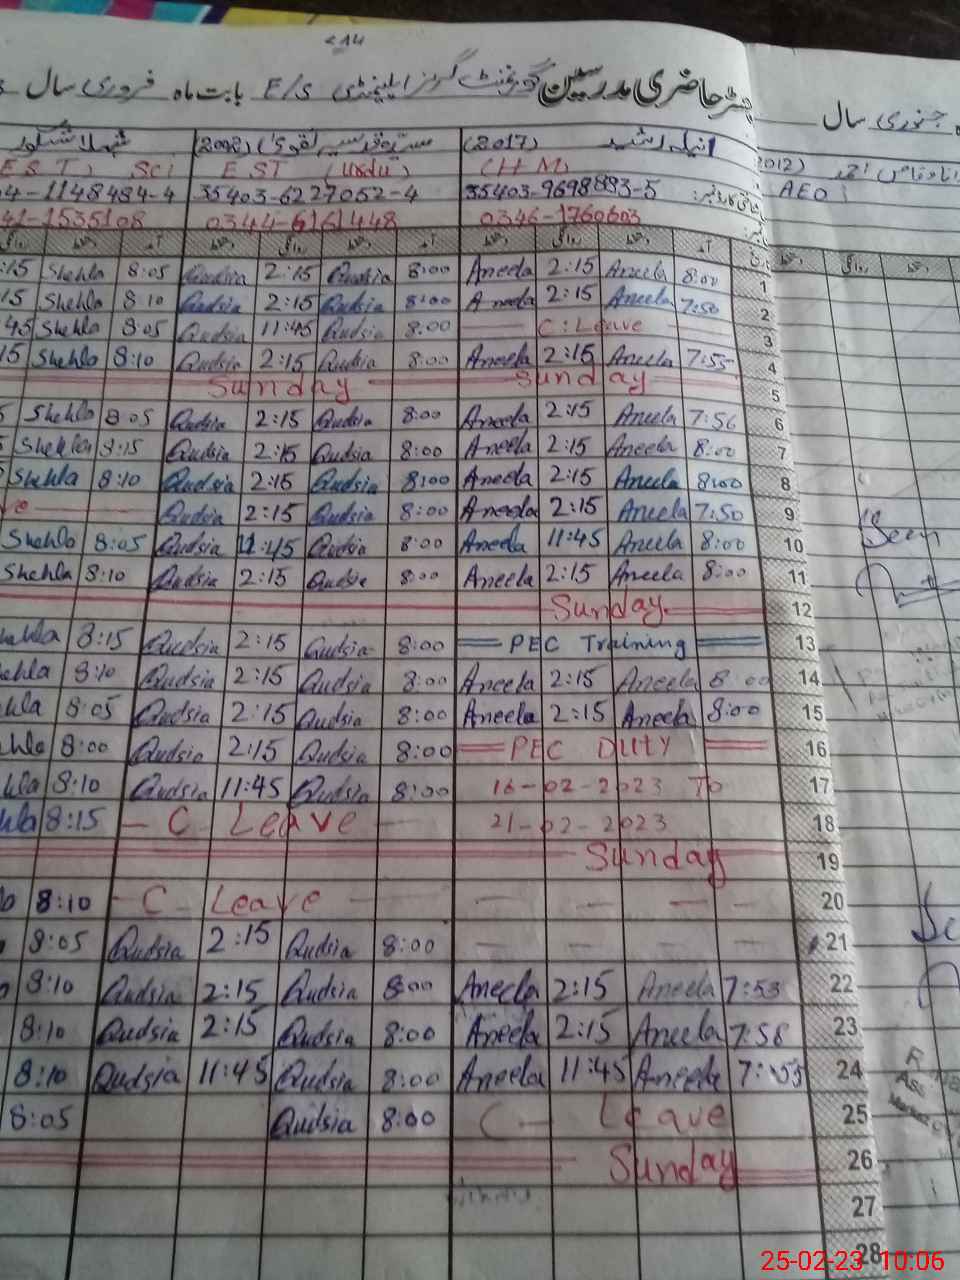 رجسٹر حاضری مدرسین گورنمنٹ گرلز ایلیمنٹری E/S بابت ماہ فروری سال
جنوری سال
(2017) انیلہ رشید
(2002)
شہلا
2012)
(H M)
EST (Urdu)
EST) Sci
AEO
35403-9698883-5
35403-6227052-4
4-1148484-4
0346-1760603
0344-6161448
41-1535108
:15 Shehla 8:05 Qudsia 2:15 Qudsia 8:00 Aneela 2:15 Aneela 8:00 1
15 Shehla 8:10 Qudsia 2:15 Qudsia 8:00 Aneela 2:15 Aneela 7:50 2
45 Shehla 8:05 Qudsia 11:45 Qudsia 8:00 C.Leave 3
15 Shehla 8:10 Qudsia 2:15 Qudsia 8:00 Aneela 2:15 Aneela 7:55 4
Sunday Sunday 5
5 Shehla 8:05 Qudsia 2:15 Qudsia 8:00 Aneela 2:15 Aneela 7:56 6
Shehla 8:15 Qudsia 2:15 Qudsia 8:00 Aneela 2:15 Aneela 8:00 7
Shehla 8:10 Qudsia 2:15 Qudsia 8:00 Aneela 2:15 Aneela 8:00 8
Qudsia 2:15 Qudsia 8:00 Aneela 2:15 Aneela 7:50 9
Seen
Shehla 8:05 Qudsia 11:45 Qudsia 8:00 Aneela 11:45 Aneela 8:00 10
Shehla 8:10 Qudsia 2:15 Qudsia 8:00 Aneela 2:15 Aneela 8:00 11
Sunday 12
hehla 8:15 Qudsia 2:15 Qudsia 8:00 PEC Training 13
ehla 8:10 Qudsia 2:15 Qudsia 8:00 Aneela 2:15 Aneela 8:00 14
hla 8:05 Qudsia 2:15 Qudsia 8:00 Aneela 2:15 Aneela 8:00 15
hla 8:00 Qudsia 2:15 Qudsia 8:00 PEC DUTY 16
hla 8:10 Qudsia 11:45 Qudsia 8:00 16-02-2023 To 17
hla 8:15 C Leave 21-02-2023 18
Sunday 19
8:10 C Leave 20
8:05 Qudsia 2:15 Qudsia 8:00 21
8:10 Qudsia 2:15 Qudsia 8:00 Aneela 2:15 Aneela 7:53 22
8:10 Qudsia 2:15 Qudsia 8:00 Aneela 2:15 Aneela 7:58 23
8:10 Qudsia 11:45 Qudsia 8:00 Aneela 11:45 Aneela 7:55 24
8:05 Qudsia 8:00 C Leave 25
Sunday 26
27
28
25-02-23 10:06